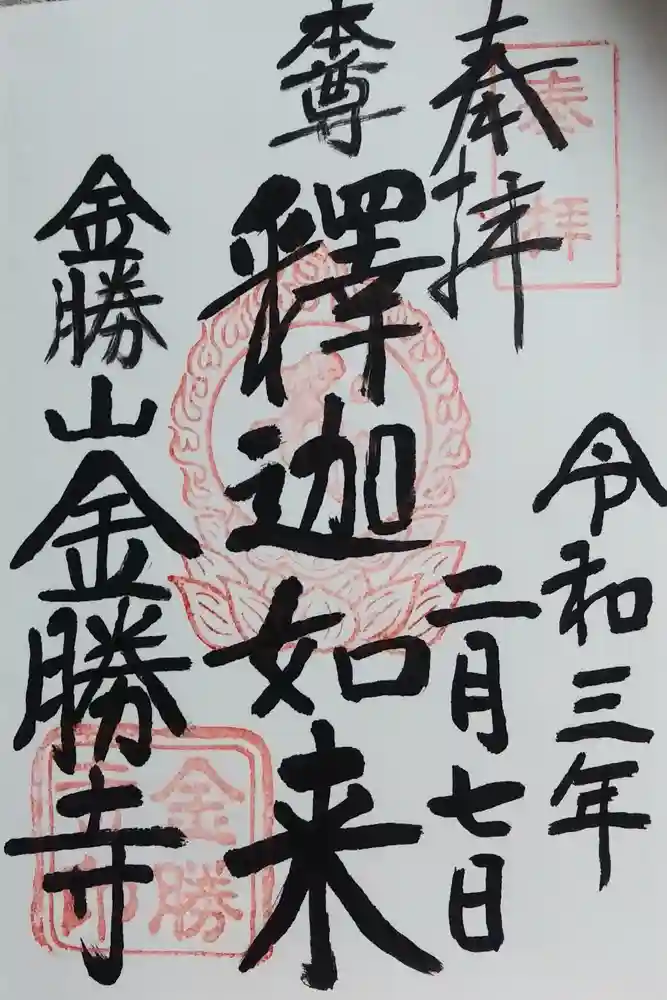 奉拝
令和三年
二月七日
本尊
釋迦如来
金勝山
金勝寺
奉拝
金勝
寺印